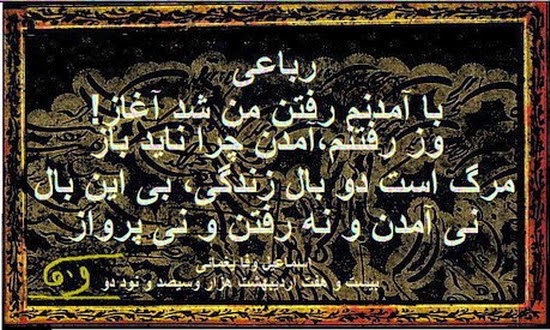 رباعی
با آمدنم رفتن من شد آغاز!
وز رفتنم،آمدن چرا ناید باز
مرگ است دو بال زندگی، بی این بال
نی آمدن و نه رفتن و نی پرواز
اسماعیل وفا یغمائی
بیست و هفت اردیبهشت هزار وسیصد و نود دو
وفا